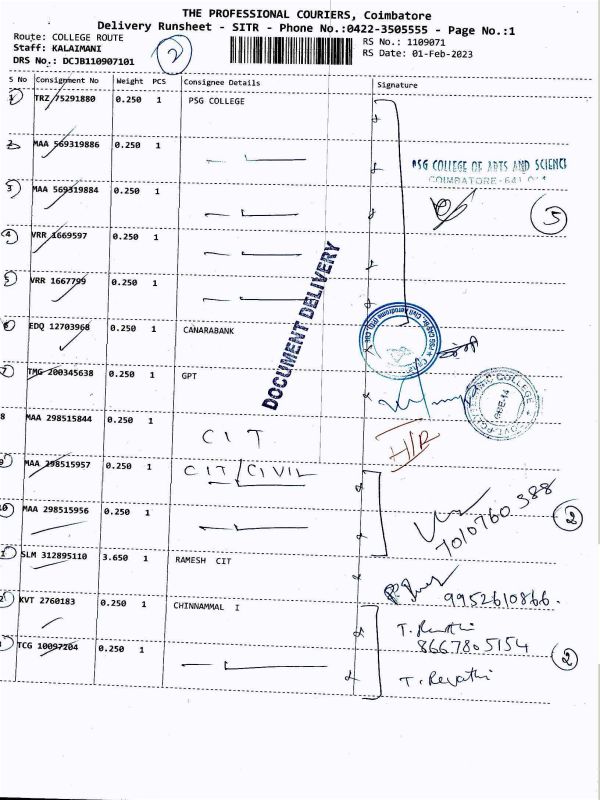 THE PROFESSIONAL COURIERS, Coimbatore
Delivery Runsheet - SITR - Phone No.:0422-3505555 - Page No.:1
Route: COLLEGE ROUTE
Staff: KALAIMANI
DRS No.: DCJB110907101
2
RS No.: 1109071
RS Date: 01-Feb-2023
S No Consignment No Weight PCS Consignee Details Signature
1 TRZ 75291880 0.250 1 PSG COLLEGE
2 MAA 569319886 0.250 1
PSG COLLEGE OF ARTS AND SCIENCE
COIMBATORE-641 014
3 MAA 569319884 0.250 1
5
4 VRR 1669597 0.250 1
5 VRR 1667799 0.250 1
DOCUMENT DELIVERY
6 EDQ 12703968 0.250 1 CANARABANK
7 TMG 200345638 0.250 1 GPT
8 MAA 298515844 0.250 1
CIT
H/R
9 MAA 298515957 0.250 1 CIT/CIVIL
10 MAA 298515956 0.250 1
7010760388
2
SLM 312895110 3.650 1 RAMESH CIT
9952610866.
KVT 2760183 0.250 1 CHINNAMMAL I
T. Revathi
8667805154
TCG 10097204 0.250 1
2
T. Revathi